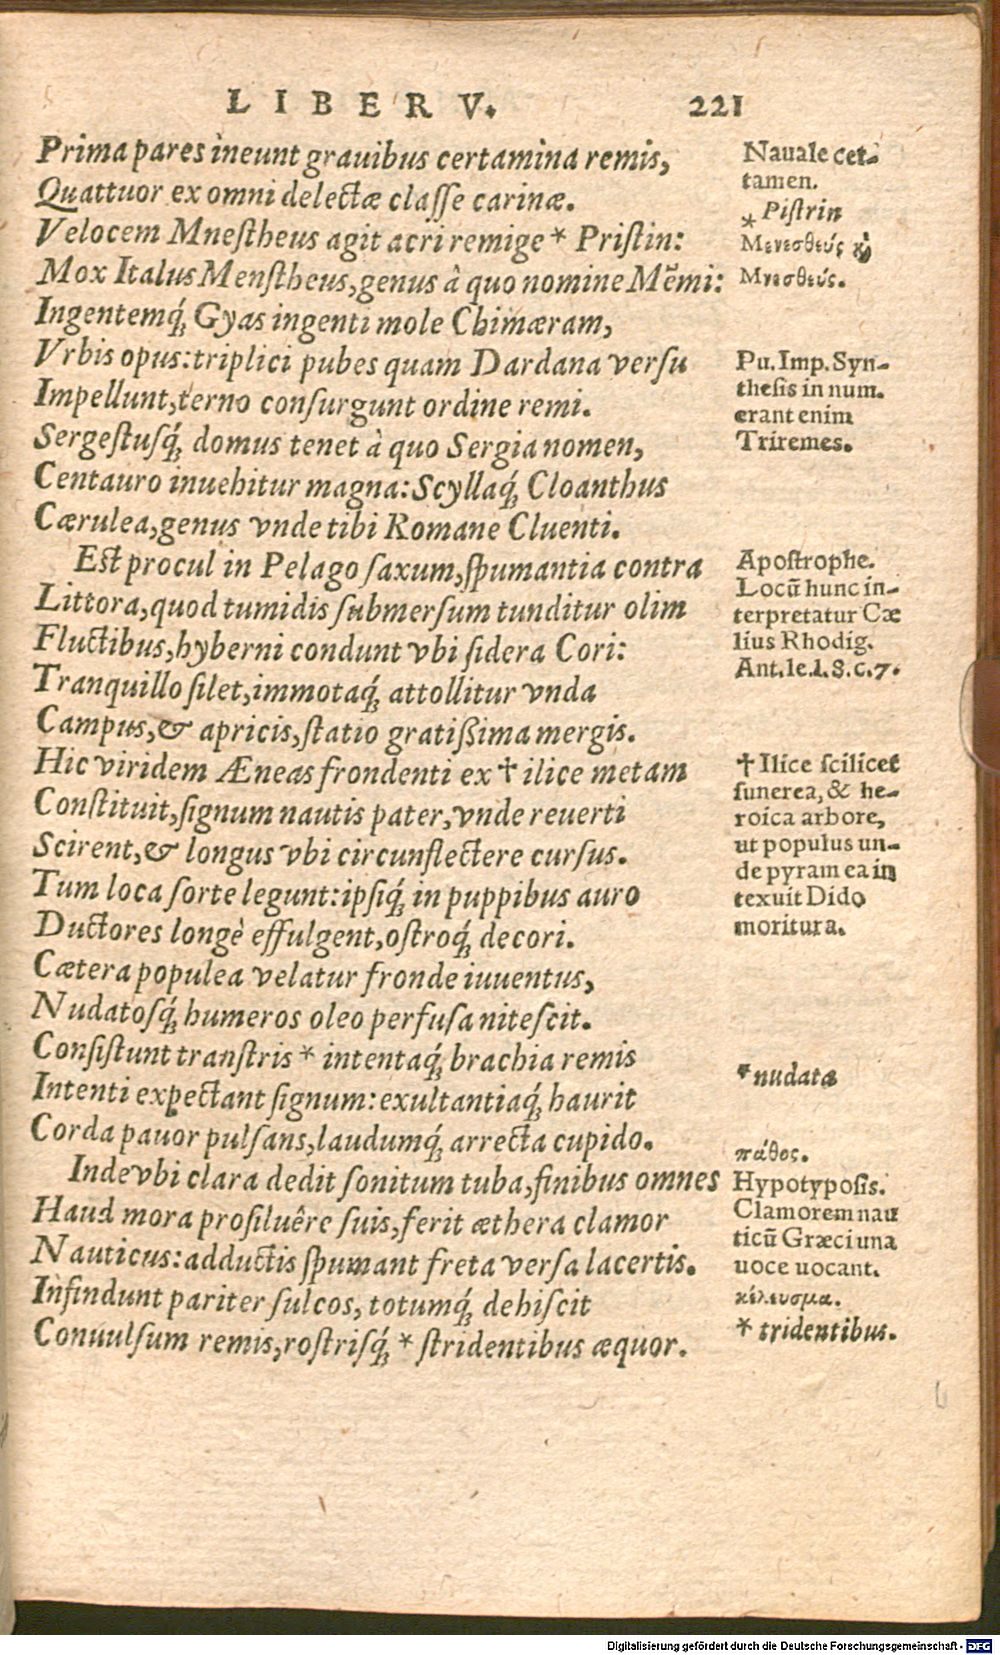 LIBER V. 221
Prima pares ineunt grauibus certamina remis,
Quattuor ex omni delectæ classe carinæ.
Velocem Mnestheus agit acri remige * Pristin:
Mox Italus Menstheus, genus à quo nomine Mēmi:
Ingentemq́; Gyas ingenti mole Chimæram,
Vrbis opus: triplici pubes quam Dardana versu
Impellunt, terno consurgunt ordine remi.
Sergestusq́; domus tenet à quo Sergia nomen,
Centauro inuehitur magna: Scyllaq́; Cloanthus
Cærulea, genus vnde tibi Romane Cluenti.
Est procul in Pelago saxum, spumantia contra
Littora, quod tumidis submersum tunditur olim
Fluctibus, hyberni condunt vbi sidera Cori:
Tranquillo silet, immotaq́; attollitur vnda
Campus, & apricis, statio gratißima mergis.
Hic viridem Æneas frondenti ex † ilice metam
Constituit, signum nautis pater, vnde reuerti
Scirent, & longus vbi circunflectere cursus.
Tum loca sorte legunt: ipsiq́; in puppibus auro
Ductores longè effulgent, ostroq́; decori.
Cætera populea velatur fronde iuuentus,
Nudatosq́; humeros oleo perfusa nitescit.
Consistunt transtris * intentaq́; brachia remis
Intenti expectant signum: exultantiaq́; haurit
Corda pauor pulsans, laudumq́; arrecta cupido.
Inde vbi clara dedit sonitum tuba, finibus omnes
Haud mora prosiluêre suis, ferit æthera clamor
Nauticus: adductis spumant freta versa lacertis.
Infindunt pariter sulcos, totumq́; dehiscit
Conuulsum remis, rostrisq́; * stridentibus æquor.
Nauale cer-
tamen.
* Pistrin
Μενεσθεύς ϗ̀
Μνεσθεύς.
Pu. Imp. Syn-
thesis in num.
erant enim
Triremes.
Apostrophe.
Locū hunc in-
terpretatur Cæ
lius Rhodig.
Ant. le. l. 8. c. 7.
† Ilice scilicet
funerea, & he-
roica arbore,
ut populus un-
de pyram ea in
texuit Dido
moritura.
* nudata
πάθος.
Hypotyposis.
Clamorem nau
ticū Græci una
uoce uocant.
κέλευσμα.
* tridentibus.
Digitalisierung gefördert durch die Deutsche Forschungsgemeinschaft - DFG